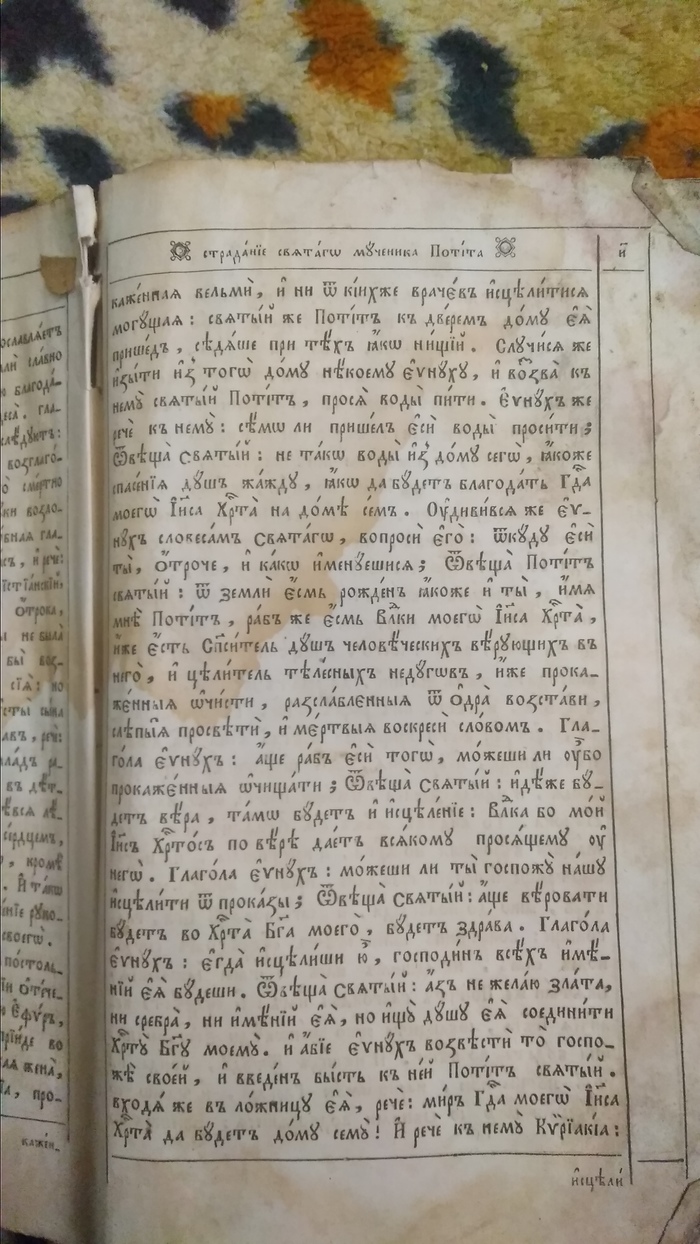 страда́нїе свѧта́гѡ мꙋ́ченика Поті́та
и҃
каже́ннаѧ вельмѝ, и҆ ни ѿ кі́ихже враче́въ и҆сцѣли́тисѧ
могꙋ́щаѧ: свѧты́й же Поті́тъ къ две́ремъ до́мꙋ є҆ѧ̀
прише́дъ, сѣдѧ́ше при тѣ́хъ ꙗ҆́кѡ ни́щїй. Слꙋчи́сѧ же
и҆зы́ти и҆з̾ тогѡ̀ до́мꙋ нѣ́коемꙋ є҆ѵнꙋ́хꙋ, и҆ воззва̀ къ
немꙋ̀ свѧты́й Поті́тъ, просѧ̀ воды̀ пи́ти. Є҆ѵнꙋ́хъ же
речѐ къ немꙋ̀: сѣ́мѡ ли прише́лъ є҆сѝ воды̀ проси́ти;
Ѿвѣща̀ свѧты́й: не та́кѡ воды̀ и҆з̾ до́мꙋ сегѡ̀, ꙗ҆́коже
спасе́нїѧ дꙋ́шъ жа́ждꙋ, ꙗ҆́кѡ да бꙋ́детъ благода́ть Гдⷭ҇а
моегѡ̀ І҆и҃са Хрⷭ҇та̀ на до́мѣ се́мъ. Оу҆диви́всѧ же є҆ѵ-
нꙋ́хъ словесе́мъ свѧта́гѡ, вопросѝ є҆го̀: ѿкꙋ́дꙋ є҆сѝ
ты̀, ѻ҆́троче, и҆ ка́кѡ и҆менꙋ́ешисѧ; Ѿвѣща̀ Поті́тъ
свѧты́й: ѿ землѝ є҆́смь рожде́нъ ꙗ҆́коже и҆ ты̀, и҆́мѧ
мнѣ̀ Поті́тъ, ра́бъ же є҆́смь Влⷣки моегѡ̀ І҆и҃са Хрⷭ҇та̀,
и҆́же є҆́сть Сп҃си́тель дꙋ́шъ человѣ́ческихъ вѣ́рꙋющихъ въ
него̀, и҆ цѣли́тель тѣле́сныхъ недꙋ́гѡвъ, и҆́же прока-
же́нныѧ ѡ҆чи́сти, разсла́бленныѧ ѿ ѻ҆дра̀ возста́ви,
слѣпы́ѧ просвѣтѝ, и҆ ме́ртвыѧ воскресѝ сло́вомъ. Гла-
го́ла є҆ѵнꙋ́хъ: а҆́ще ра́бъ є҆сѝ тогѡ̀, мо́жеши ли оу҆̀бо
прокаже́нныѧ ѡ҆чища́ти; Ѿвѣща̀ свѧты́й: и҆дѣ́же бꙋ́-
детъ вѣ́ра, та́мѡ бꙋ́детъ и҆ и҆сцѣле́нїе: Влⷣка бо мо́й
І҆и҃съ Хрⷭ҇то́съ по вѣ́рѣ дае́тъ всѧ́комꙋ просѧ́щемꙋ оу҆
негѡ̀. Глаго́ла є҆ѵнꙋ́хъ: мо́жеши ли ты̀ госпожꙋ̀ на́шꙋ
и҆сцѣли́ти ѿ прока́зы; Ѿвѣща̀ свѧты́й: а҆́ще вѣ́ровати
бꙋ́детъ во Хрⷭ҇та̀ Бг҃а моего̀, бꙋ́детъ здра́ва. Глаго́ла
є҆ѵнꙋ́хъ: є҆гда̀ и҆сцѣли́ши ю҆̀, господи́нъ всѣ́хъ и҆мѣ́-
нїй є҆ѧ̀ бꙋ́деши. Ѿвѣща̀ свѧты́й: а҆́зъ не жела́ю зла́та,
ни сребра̀, ни и҆мѣ́нїй є҆ѧ̀, но и҆щꙋ̀ дꙋ́шꙋ є҆ѧ̀ соедини́ти
Хрⷭ҇тꙋ̀ Бг҃ꙋ моемꙋ̀. и҆ а҆́бїе є҆ѵнꙋ́хъ возвѣстѝ то̀ госпо-
жѣ̀ свое́й, и҆ введе́нъ бы́сть къ не́й Поті́тъ свѧты́й.
входѧ́ же въ ло́жницꙋ є҆ѧ̀, рече: ми́ръ Гдⷭ҇а моегѡ̀ І҆и҃са
Хрⷭ҇та̀ да бꙋ́детъ до́мꙋ семꙋ̀! И҆ речѐ къ немꙋ̀ Кѷрїакі́а:
и҆сцѣли́